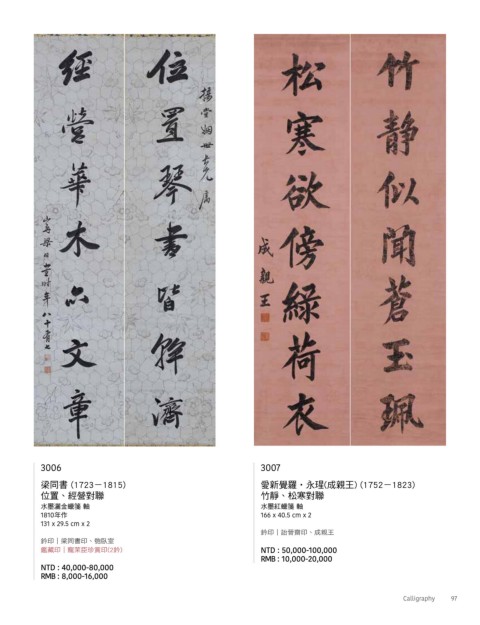 位置琴書皆幹濟
經營華木亦文章
山舟梁同書時年八十有八
竹静似聞蒼玉珮
松寒欲傍綠荷衣
成親王
3006
梁同書 (1723－1815)
位置、經營對聯
水墨灑金蠟箋 軸
1810年作
131 x 29.5 cm x 2
鈐印｜梁同書印、
鑑藏印｜龐萊臣珍賞印(2鈐)
NTD : 40,000-80,000
RMB : 8,000-16,000
3007
愛新覺羅・永瑆(成親王) (1752－1823)
竹靜、松寒對聯
水墨紅蠟箋 軸
166 x 40.5 cm x 2
鈐印｜詒晉齋印、成親王
NTD : 50,000-100,000
RMB : 10,000-20,000
Calligraphy 97